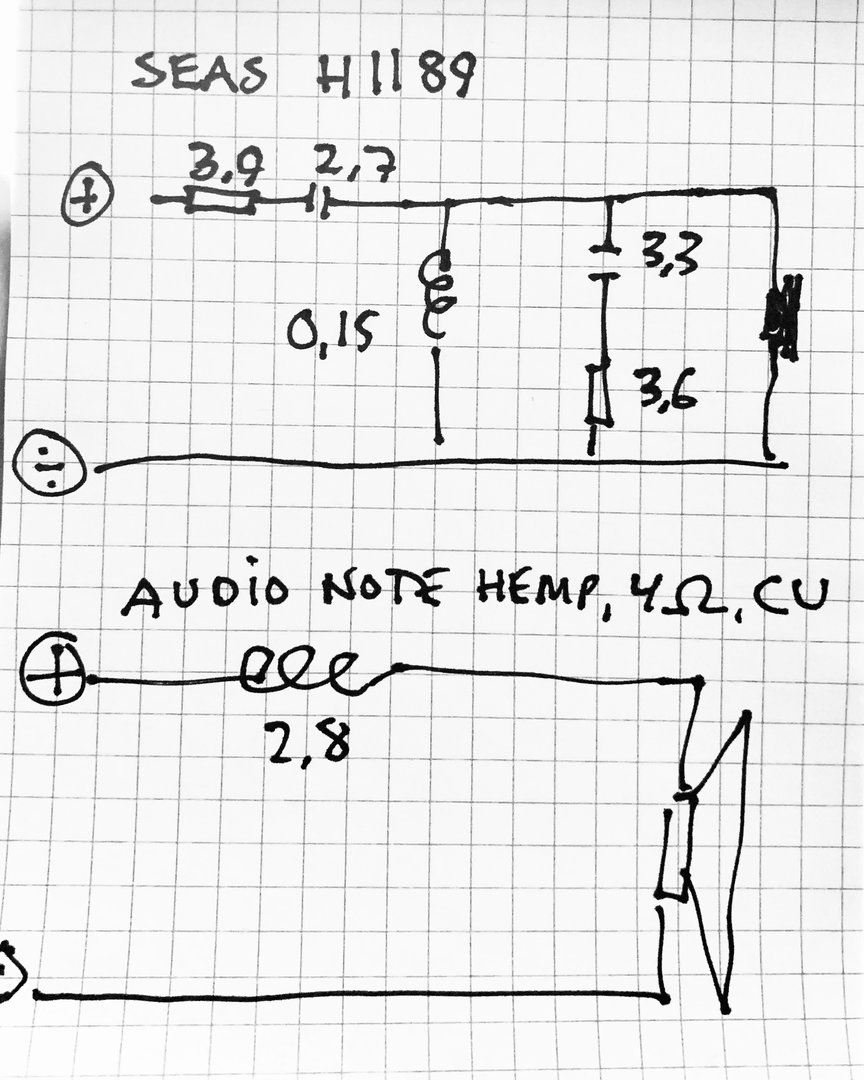 SEAS H1189
+
3,9 2,7
3,3
0,15
3,6
÷
AUDiO NOTE HEMP, 4Ω, CU
+
2,8